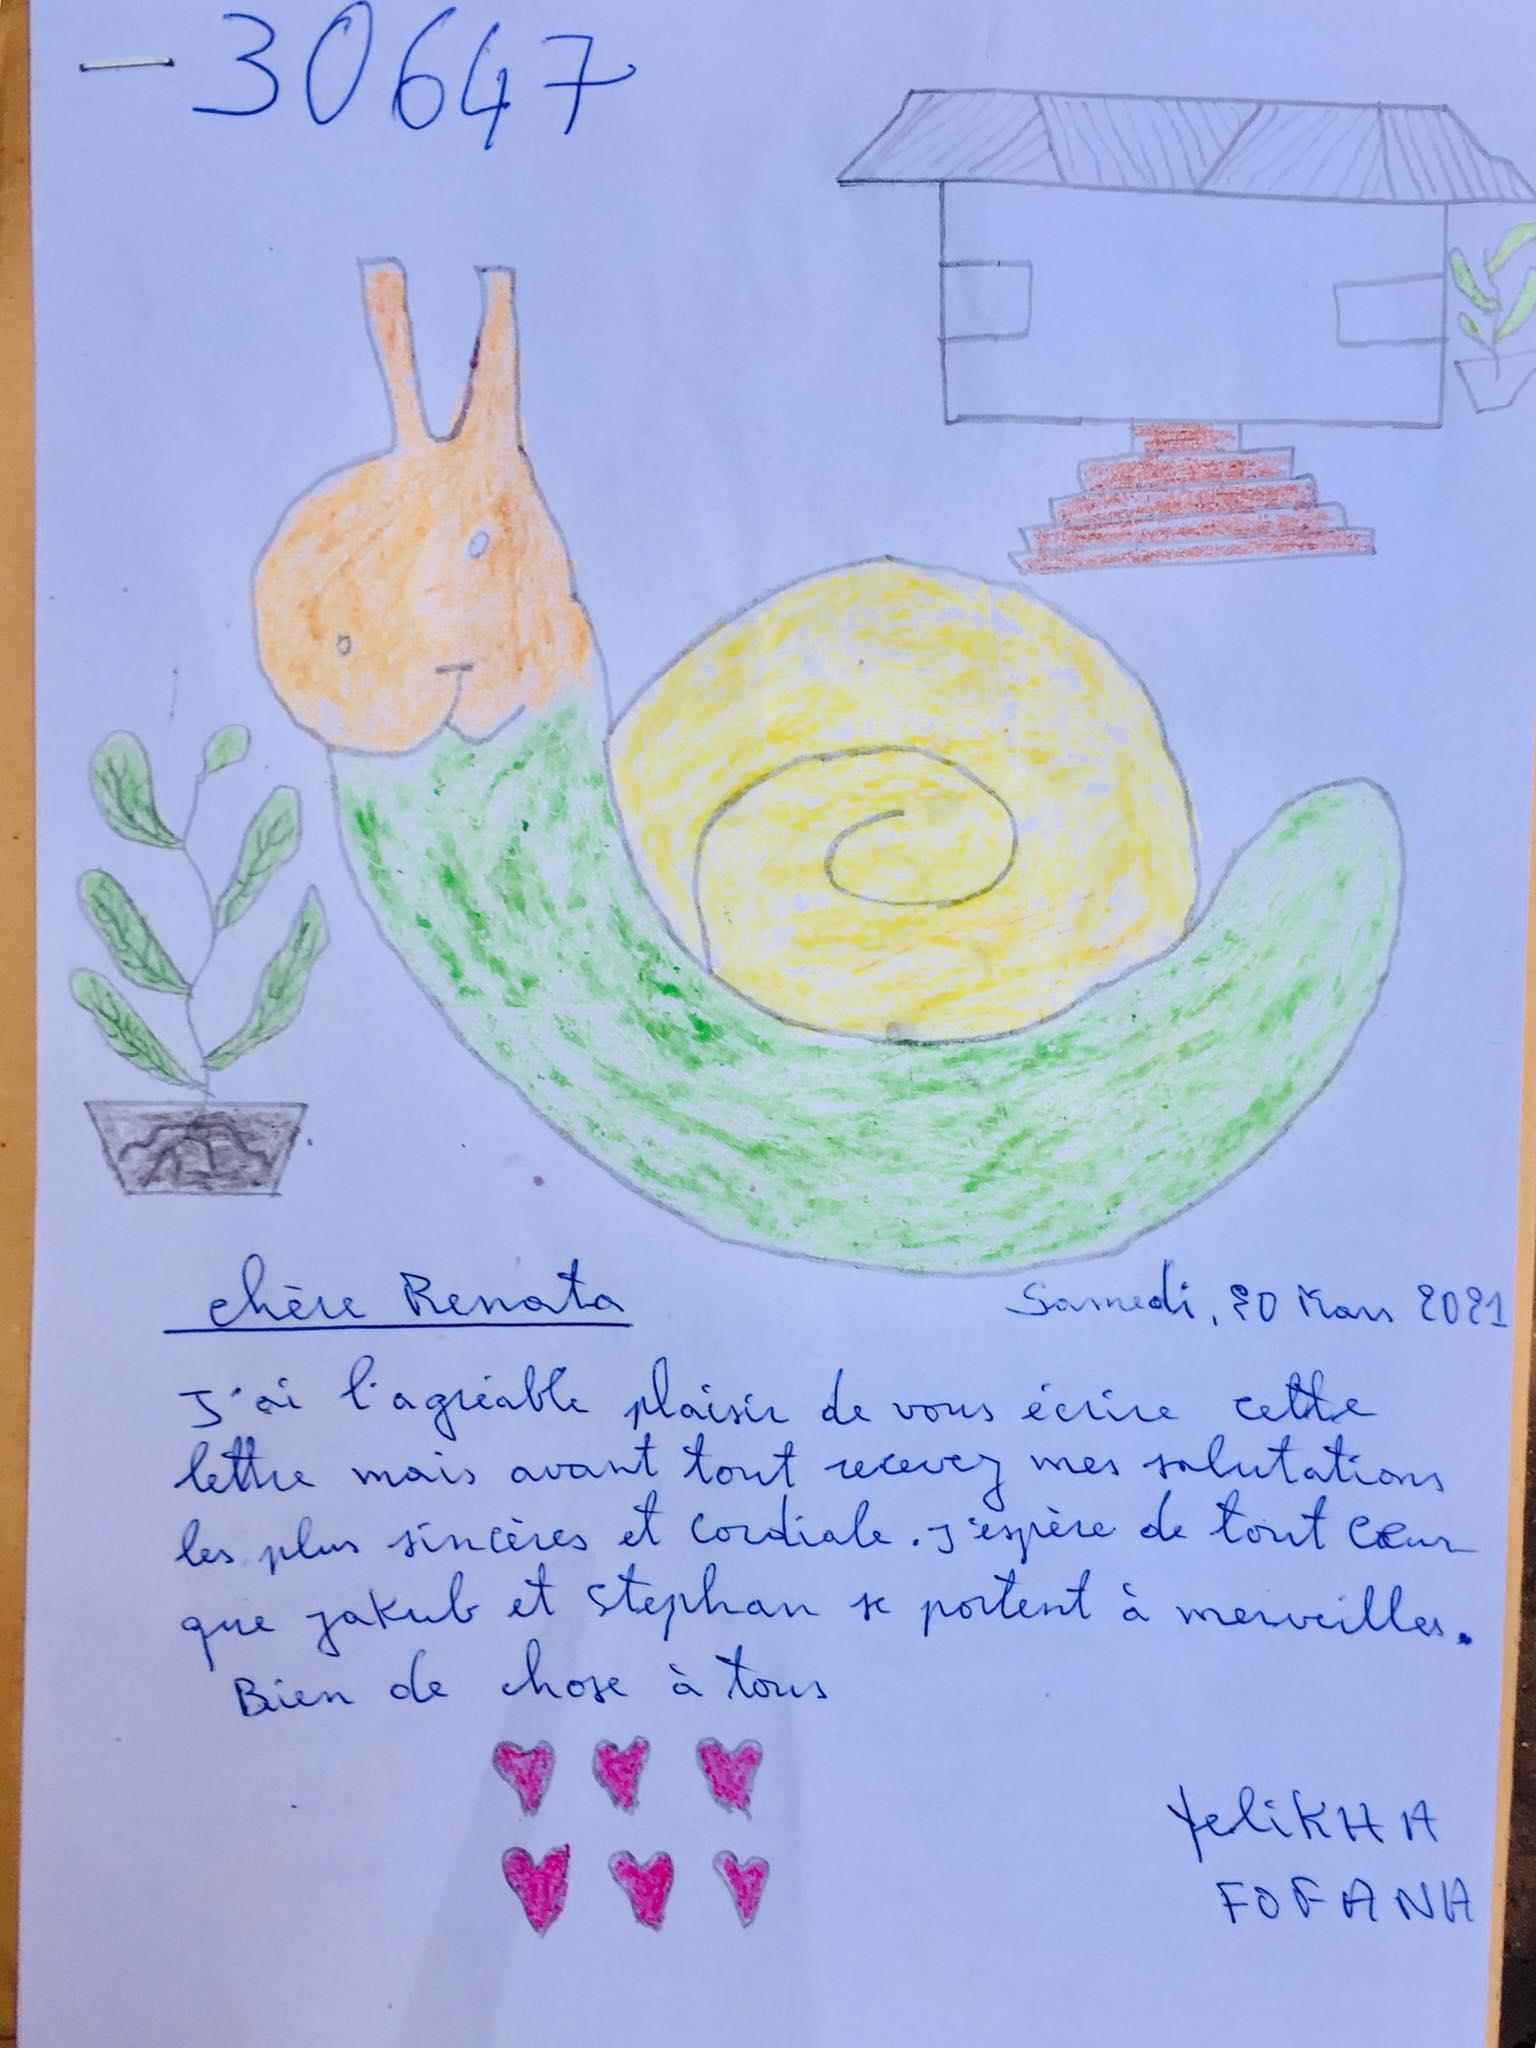 30647
chère Renata
Samedi, 20 Mars 2021
J'ai l'agréable plaisir de vous écrire cette
lettre mais avant tout recevez mes salutations
les plus sincères et cordiale. J'espère de tout cœur
que jakub et stephan se portent à merveilles.
Bien de chose à tous
YeliKHA
FOFANA